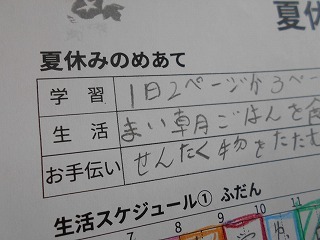 夏休
夏休みのめあて
学習 1日2ページか3ペー
生活 まい朝ごはんを食
お手伝い せんたく物をたたむ
生活スケジュール① ふだん
7 8 9 10 11